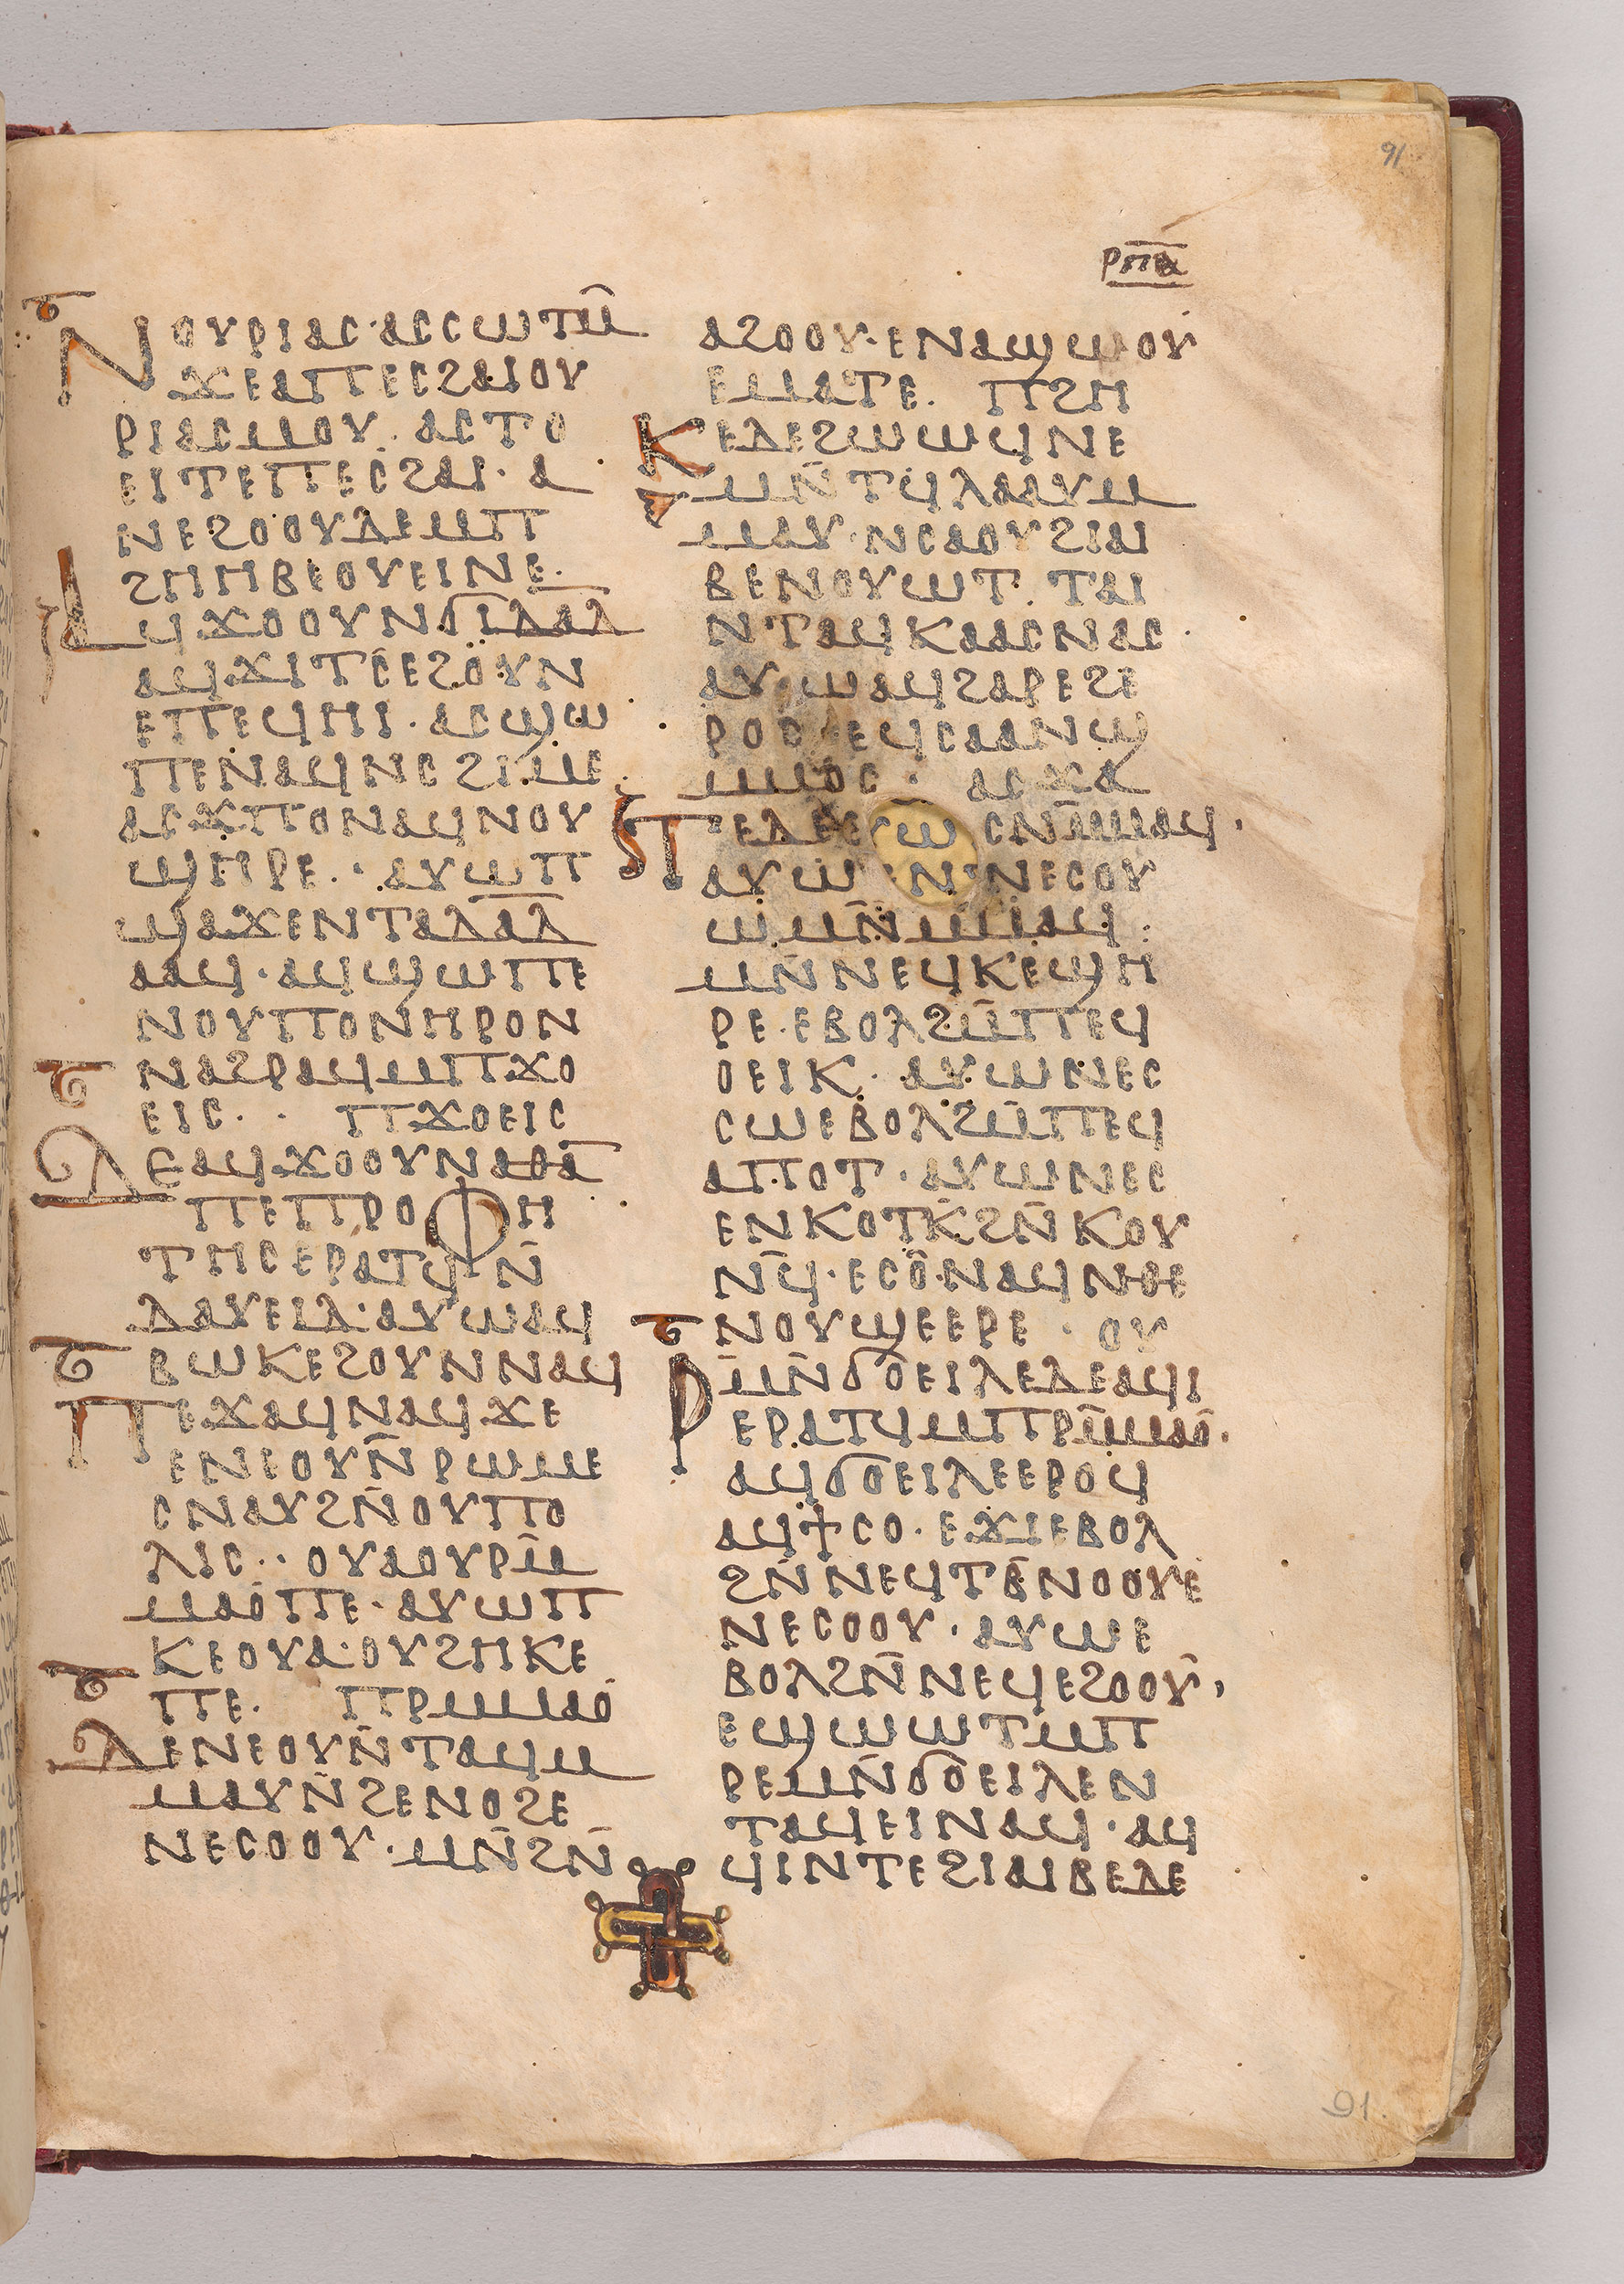 91
ⲣⲡⲁ
ⲛⲟⲩⲣⲓⲁⲥ·ⲁⲥⲥⲱⲧⲙ̄
ϫⲉⲁⲡⲉⲥϩⲁⲓⲟⲩ
ⲣⲓⲁⲥⲙⲟⲩ·ⲁⲥⲧⲟ
ⲉⲓⲧⲉⲡⲉⲥϩⲁⲓ·ⲁ
ⲛⲉϩⲟⲟⲩⲇⲉⲙⲡ
ϩⲏⲏⲃⲉⲟⲩⲉⲓⲛⲉ·
ⲁϥϫⲟⲟⲩⲛϭⲓⲇⲁⲇ
ⲁϥϫⲓⲧⲥⲉϩⲟⲩⲛ
ⲉⲡⲉϥⲏⲓ·ⲁⲥϣⲱ
ⲡⲉⲛⲁϥⲛⲥϩⲓⲙⲉ
ⲁⲥϫⲡⲟⲛⲁϥⲛⲟⲩ
ϣⲏⲣⲉ·ⲁⲩⲱⲡ
ϣⲁϫⲉⲛⲧⲁⲇⲁⲇ
ⲁⲁϥ·ⲁϥϣⲱⲡⲉ
ⲛⲟⲩⲡⲟⲛⲏⲣⲟⲛ
ⲛⲁϩⲣⲁϥⲙⲡϫⲟ
ⲉⲓⲥ·· ⲡϫⲟⲉⲓⲥ
ⲇⲉⲁϥϫⲟⲟⲩⲛⲁⲑⲁ̄
ⲡⲉⲡⲣⲟⲫⲏ
ⲧⲏⲥⲉⲣⲁⲧϥⲛ̄
ⲇⲁⲩⲉⲓⲇ·ⲁⲩⲱⲁϥ
ⲃⲱⲕⲉϩⲟⲩⲛⲛⲁϥ
ⲡⲉϫⲁϥⲛⲁϥϫⲉ
ⲉⲛⲉⲟⲩⲛ̄ⲣⲱⲙⲉ
ⲥⲛⲁⲩϩⲛ̄ⲟⲩⲡⲟ
ⲗⲓⲥ··ⲟⲩⲁⲟⲩⲣⲙ̄
ⲙⲁⲟⲡⲉ·ⲁⲩⲱⲡ
ⲕⲉⲟⲩⲁ·ⲟⲩϩⲏⲕⲉ
ⲡⲉ· ⲡⲣⲙⲙⲁⲟ
ⲇⲉⲛⲉⲟⲩⲛ̄ⲧⲁϥⲙ
ⲙⲁⲩⲛ̄ϩⲉⲛⲟϩⲉ
ⲛⲉⲥⲟⲟⲩ·ⲙⲛ̄ϩⲛ̄
ⲁϩⲟⲟⲩ·ⲉⲛⲁϣⲱⲟⲩ
ⲉⲙⲁⲧⲉ· ⲡϩⲏ
ⲕⲉⲇⲉϩⲱⲱϥⲛⲉ
ⲙⲛ̄ⲧϥⲗⲁⲁⲩⲙ
ⲙⲁⲩ·ⲛⲥⲁⲟⲩϩⲓⲁⲓ
ⲃⲉⲛⲟⲩⲱⲧ·ⲧⲁⲓ
ⲛⲧⲁϥⲕⲁⲁⲥⲛⲁⲥ·
ⲁⲩⲱⲁϥϩⲁⲣⲉϩⲉ
ⲣⲟⲥ ⲉϥⲥⲁⲁⲛϣ
ⲙⲙⲟⲥ· ⲁⲥϫⲁ
ⲧⲉⲇⲉⲩⲱ ⲥⲛⲙ̄ⲙⲁϥ·
ⲁⲩⲱ ⲛ ⲛⲉⲥⲟⲩ
ⲱⲙⲛ̄ⲙⲙⲁϥ:
ⲙⲛ̄ⲛⲉϥⲕⲉϣⲏ
ⲣⲉ·ⲉⲃⲟⲗϩⲙ̄ⲡⲉϥ
ⲟⲉⲓⲕ·ⲁⲩⲱⲛⲉⲥ
ⲥⲱⲉⲃⲟⲗϩⲙ̄ⲡⲉϥ
ⲁⲡⲟⲧ·ⲁⲩⲱⲛⲉⲥ
ⲉⲛⲕⲟⲧⲕϩⲛ̄ⲕⲟⲩ
ⲛϥ̄·ⲉⲥⲟ·ⲛⲁϥⲛⲑⲉ
ⲛⲟⲩϣⲉⲉⲣⲉ·ⲟⲩ
ⲣⲙⲛ̄ϭⲟⲉⲓⲗⲉⲇⲉⲁϥⲓ
ⲉⲣⲁⲧϥⲙⲡⲣⲙ̄ⲙⲁⲟ·
ⲁϥϭⲟⲉⲓⲗⲉⲉⲣⲟϥ
ⲁϥϯⲥⲟ·ⲉϫⲓⲉⲃⲟⲗ
ϩⲛ̄ⲛⲉϥⲧⲃ̄ⲛⲟⲟⲩⲉ
ⲛⲉⲥⲟⲟⲩ·ⲁⲩⲱⲉ
ⲃⲟⲗϩⲛ̄ⲛⲉϥⲉϩⲟⲟⲩ·
ⲉϣⲱⲱⲧⲙⲡ
ⲣⲉⲙⲛ̄ϭⲟⲉⲓⲗⲉⲛ
ⲧⲁϥⲉⲓⲛⲁϥ·ⲁϥ
ϥⲓⲛⲧⲉϩⲓⲁⲓⲃⲉⲇⲉ
91.